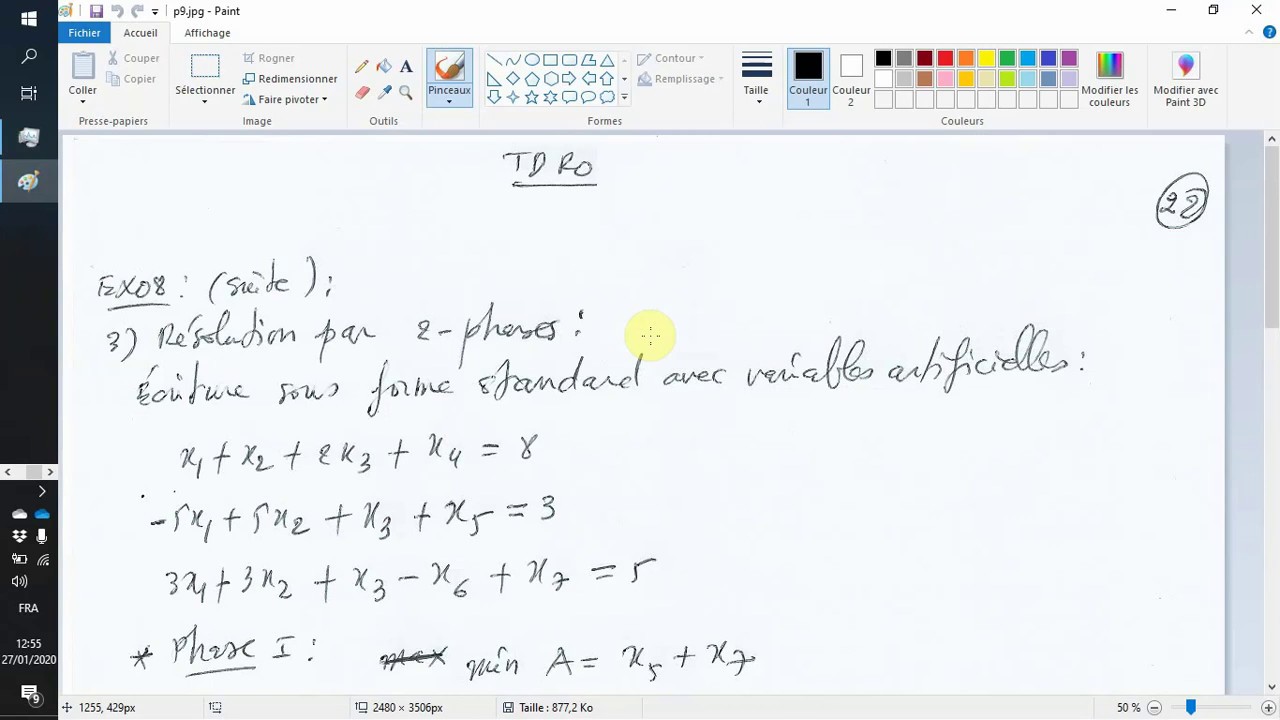 p9.jpg - Paint
Fichier Accueil Affichage
Coller
Couper
Copier
Presse-papiers
Sélectionner
Rogner
Redimensionner
Faire pivoter
Image
Outils
Pinceaux
Contour
Remplissage
Formes
Taille
Couleur 1
Couleur 2
Modifier les couleurs
Couleurs
Modifier avec Paint 3D
TD RO
22
EX08 : (suite) :
3) Résolution par 2-phases :
Écriture sous forme standard avec variables artificielles :
x₁ + x₂ + 2x₃ + x₄ = 8
-5x₁ + 5x₂ + x₃ + x₅ = 3
3x₁ + 3x₂ + x₃ - x₆ + x₇ = 5
* Phase I : max min A = x₅ + x₇
FRA
12:55
27/01/2020
9
1255, 429px
2480 × 3506px
Taille : 877,2 Ko
50 %